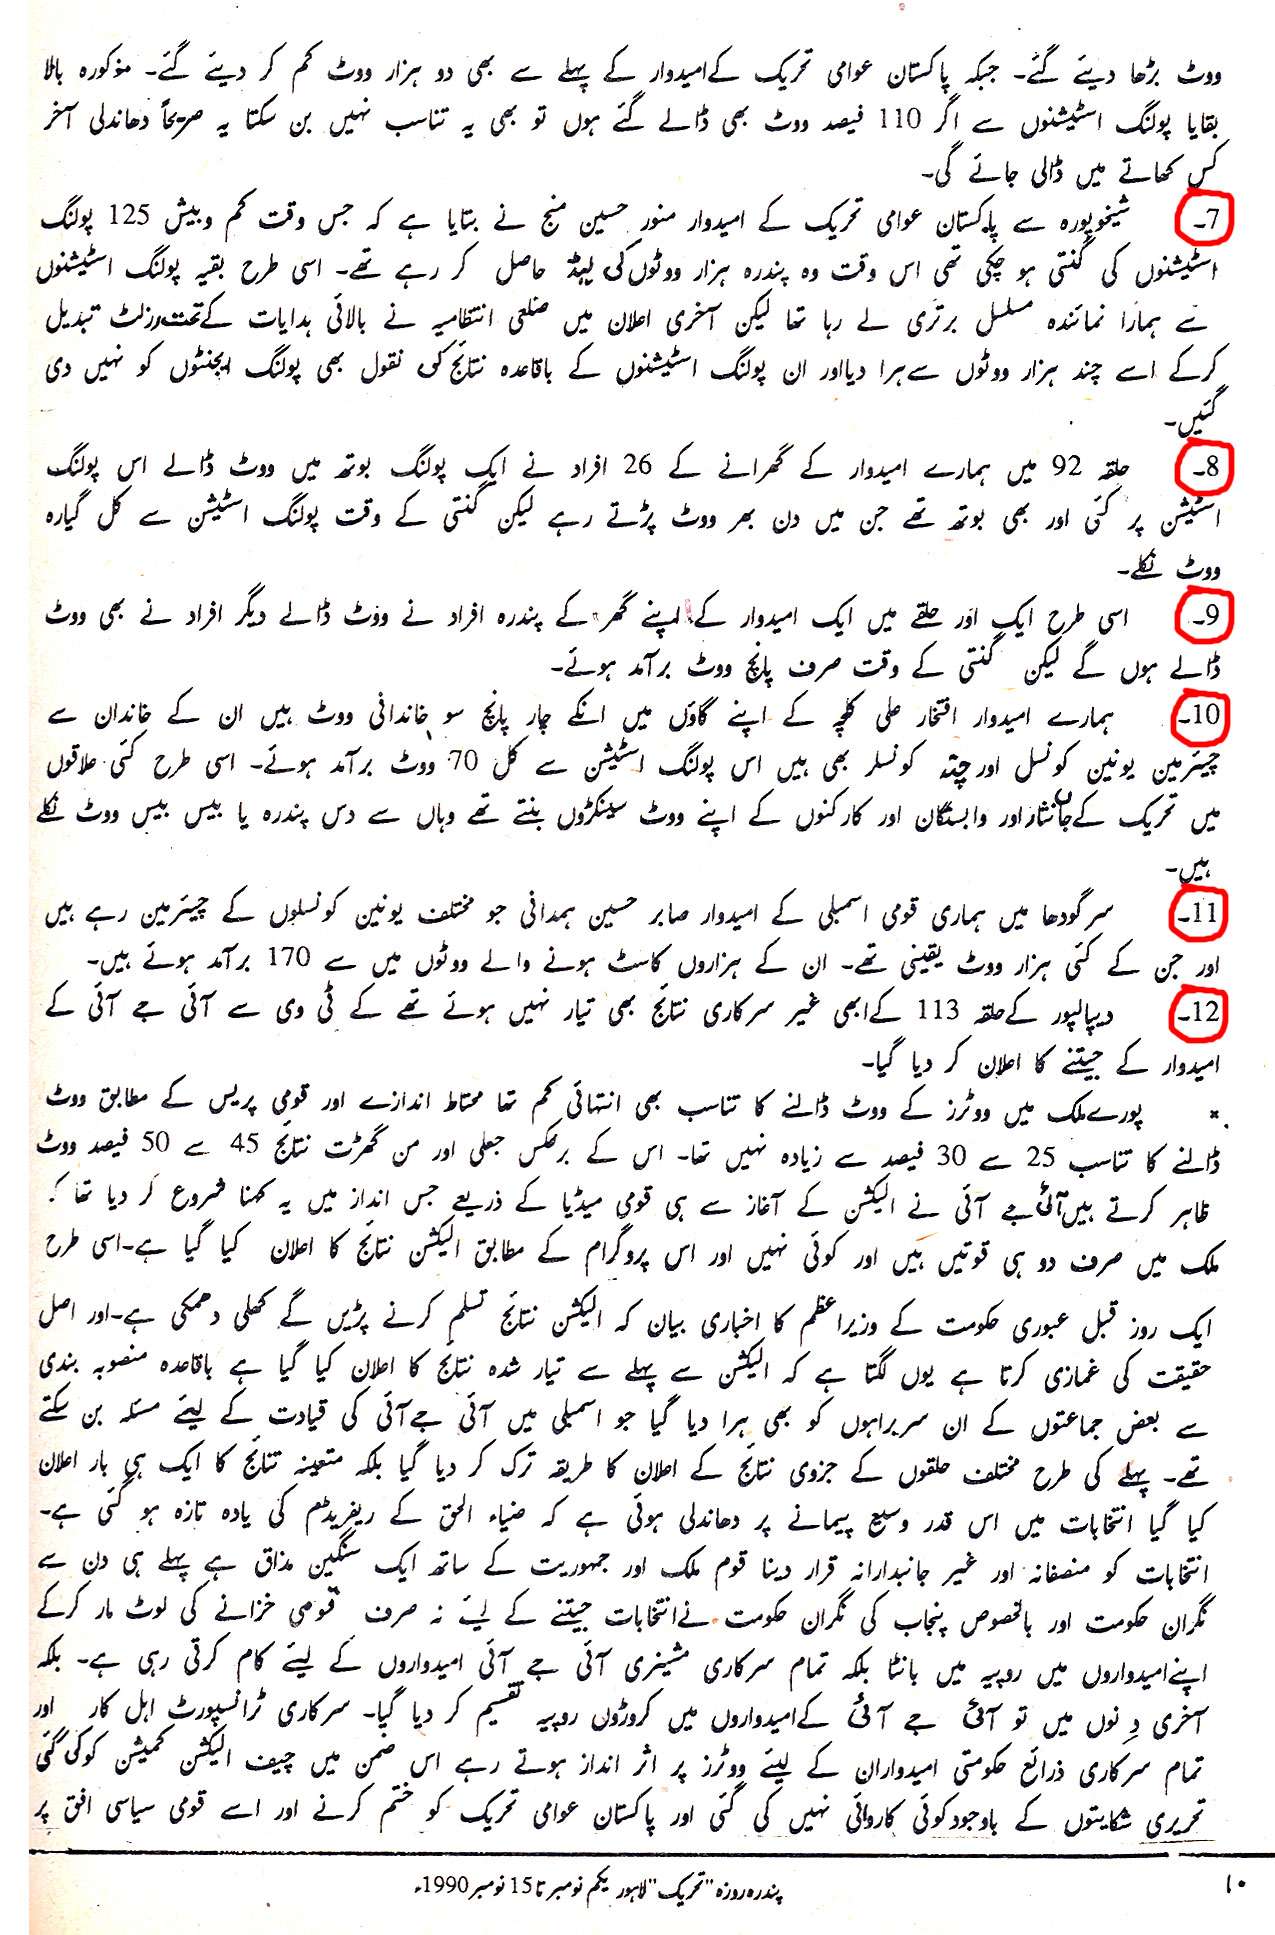 ووٹ بڑھا دیئے گئے۔ جبکہ پاکستان عوامی تحریک کے امیدوار کے پہلے سے بھی دو ہزار ووٹ کم کر دیئے گئے۔ مذکورہ بالا
بقایا پولنگ اسٹیشنوں سے اگر 110 فیصد ووٹ بھی ڈالے گئے ہوں تو بھی یہ تناسب نہیں بن سکتا یہ صریحاً دھاندلی آخر
کس کھاتے میں ڈالی جائے گی۔
7۔ شیخوپورہ سے پاکستان عوامی تحریک کے امیدوار منور حسین منج نے بتایا ہے کہ جس وقت کم و بیش 125 پولنگ
اسٹیشنوں کی گنتی ہو چکی تھی اس وقت وہ پندرہ ہزار ووٹوں کی لیڈ حاصل کر رہے تھے۔ اسی طرح بقیہ پولنگ اسٹیشنوں
سے ہمارا نمائندہ مسلسل برتری لے رہا تھا لیکن آخری اعلان میں ضلعی انتظامیہ نے بالائی ہدایات کے تحت رزلٹ تبدیل
کرکے اسے چند ہزار ووٹوں سے ہرا دیا اور ان پولنگ اسٹیشنوں کے باقاعدہ نتائج کی نقول بھی پولنگ ایجنٹوں کو نہیں دی
گئیں۔
8۔ حلقہ 92 میں ہمارے امیدوار کے گھرانے کے 26 افراد نے ایک پولنگ بوتھ میں ووٹ ڈالے اس پولنگ
اسٹیشن پر کئی اور بھی بوتھ تھے جن میں دن بھر ووٹ پڑتے رہے لیکن گنتی کے وقت پولنگ اسٹیشن سے کل گیارہ
ووٹ نکلے۔
9۔ اسی طرح ایک اور حلقے میں ایک امیدوار کے اپنے گھر کے پندرہ افراد نے ووٹ ڈالے دیگر افراد نے بھی ووٹ
ڈالے ہوں گے لیکن گنتی کے وقت صرف پانچ ووٹ برآمد ہوئے۔
10۔ ہمارے امیدوار افتخار علی کلچہ کے اپنے گاؤں میں انکے چار پانچ سو خاندانی ووٹ ہیں ان کے خاندان سے
چیئرمین یونین کونسل اور چند کونسلر بھی ہیں اس پولنگ اسٹیشن سے کل 70 ووٹ برآمد ہوئے۔ اسی طرح کئی علاقوں
میں تحریک کے جانثار اور وابستگان اور کارکنوں کے اپنے ووٹ سینکڑوں بنتے تھے وہاں سے دس پندرہ یا بیس بیس ووٹ نکلے
ہیں۔
11۔ سرگودھا میں ہماری قومی اسمبلی کے امیدوار صابر حسین ہمدانی جو مختلف یونین کونسلوں کے چیئرمین رہے ہیں
اور جن کے کئی ہزار ووٹ یقینی تھے۔ ان کے ہزاروں کاسٹ ہونے والے ووٹوں میں سے 170 برآمد ہوئے ہیں۔
12۔ دیپالپور کے حلقہ 113 کے ابھی غیر سرکاری نتائج بھی تیار نہیں ہوئے تھے کے ٹی وی سے آئی جے آئی کے
امیدوار کے جیتنے کا اعلان کر دیا گیا۔
* پورے ملک میں ووٹرز کے ووٹ ڈالنے کا تناسب بھی انتہائی کم تھا محتاط اندازے اور قومی پریس کے مطابق ووٹ
ڈالنے کا تناسب 25 سے 30 فیصد سے زیادہ نہیں تھا۔ اس کے برعکس جعلی اور من گھڑت نتائج 45 سے 50 فیصد ووٹ
ظاہر کرتے ہیں آئی جے آئی نے الیکشن کے آغاز سے ہی قومی میڈیا کے ذریعے جس انداز میں یہ کہنا شروع کر دیا تھا کہ
ملک میں صرف دو ہی قوتیں ہیں اور کوئی نہیں اور اس پروگرام کے مطابق الیکشن نتائج کا اعلان کیا گیا ہے۔ اسی طرح
ایک روز قبل عبوری حکومت کے وزیراعظم کا اخباری بیان کہ الیکشن نتائج تسلم کرنے پڑیں گے کھلی دھمکی ہے۔ اور اصل
حقیقت کی غمازی کرتا ہے یوں لگتا ہے کہ الیکشن سے پہلے سے تیار شدہ نتائج کا اعلان کیا گیا ہے باقاعدہ منصوبہ بندی
سے بعض جماعتوں کے ان سربراہوں کو بھی ہرا دیا گیا جو اسمبلی میں آئی جے آئی کی قیادت کے لیئے مسئلہ بن سکتے
تھے۔ پہلے کی طرح مختلف حلقوں کے جزوی نتائج کے اعلان کا طریقہ ترک کر دیا گیا بلکہ متعینہ نتائج کا ایک ہی بار اعلان
کیا گیا انتخابات میں اس قدر وسیع پیمانے پر دھاندلی ہوئی ہے کہ ضیاء الحق کے ریفرینڈم کی یادہ تازہ ہو گئی ہے۔
انتخابات کو منصفانہ اور غیر جانبدارانہ قرار دینا قوم ملک اور جمہوریت کے ساتھ ایک سنگین مذاق ہے پہلے ہی دن سے
نگران حکومت اور بالخصوص پنجاب کی نگران حکومت نے انتخابات جیتنے کے لیئے نہ صرف قومی خزانے کی لوٹ مار کرکے
اپنے امیدواروں میں روپیہ میں بانٹا بلکہ تمام سرکاری مشینری آئی جے آئی امیدواروں کے لیئے کام کرتی رہی ہے۔ بلکہ
آخری دنوں میں تو آئی جے آئی کے امیدواروں میں کروڑوں روپیہ تقسیم کر دیا گیا۔ سرکاری ٹرانسپورٹ اہل کار اور
تمام سرکاری ذرائع حکومتی امیدواران کے لیئے ووٹرز پر اثر انداز ہوتے رہے اس ضمن میں چیف الیکشن کمیشن کو کی گئی
تحریری شکایتوں کے باوجود کوئی کاروائی نہیں کی گئی اور پاکستان عوامی تحریک کو ختم کرنے اور اسے قومی سیاسی افق پر
پندرہ روزہ "تحریک" لاہور یکم نومبر تا 15 نومبر 1990ء
۱۰